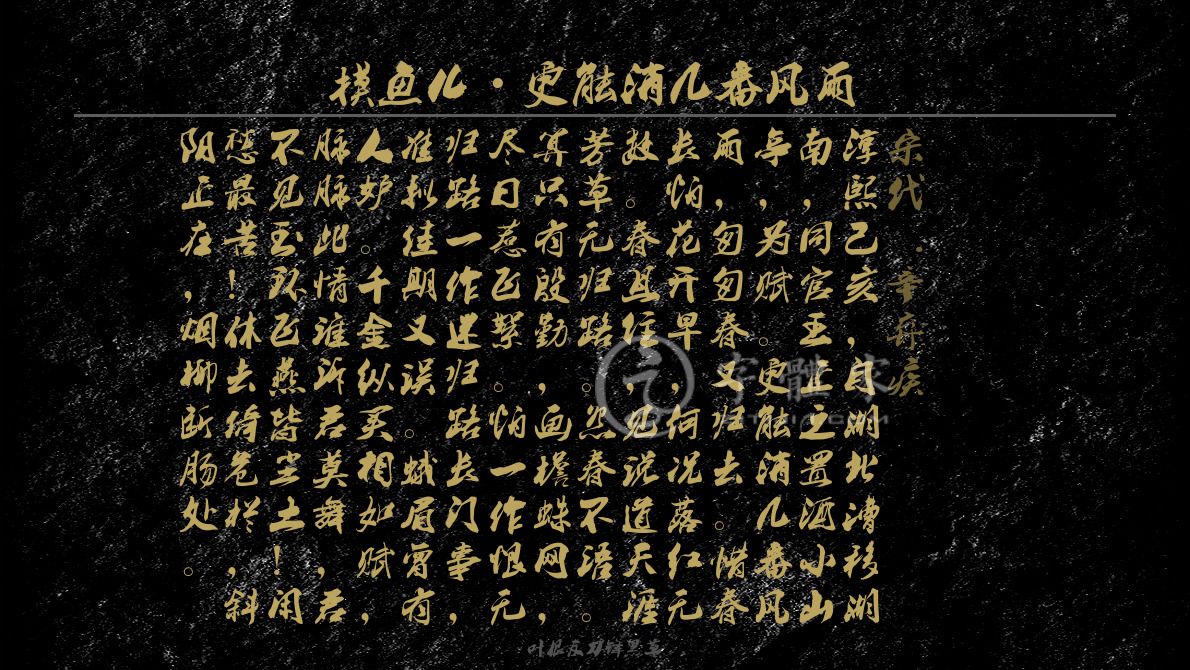 摸鱼儿·更能消几番风雨
宋代·辛弃疾
淳熙己亥，自湖北漕移湖
南，同官王正之置酒小山
亭，为赋。更能消几番风
雨，匆匆春又归去。惜春
长怕花开早，何况落红无
数。春且住，见说道天涯
芳草无归路。怨春不语。
算只有殷勤，画檐蛛网，
尽日惹飞絮。怕一作恨无
归路一作迷归路长门事，
准拟佳期又误。蛾眉曾有
人妒。千金纵买相如赋，
脉脉此情谁诉君莫舞，君
不见玉环飞燕皆尘土！闲
愁最苦！休去倚危栏，斜
阳正在，烟柳断肠处。
字體家
叶根友刀锋黑草